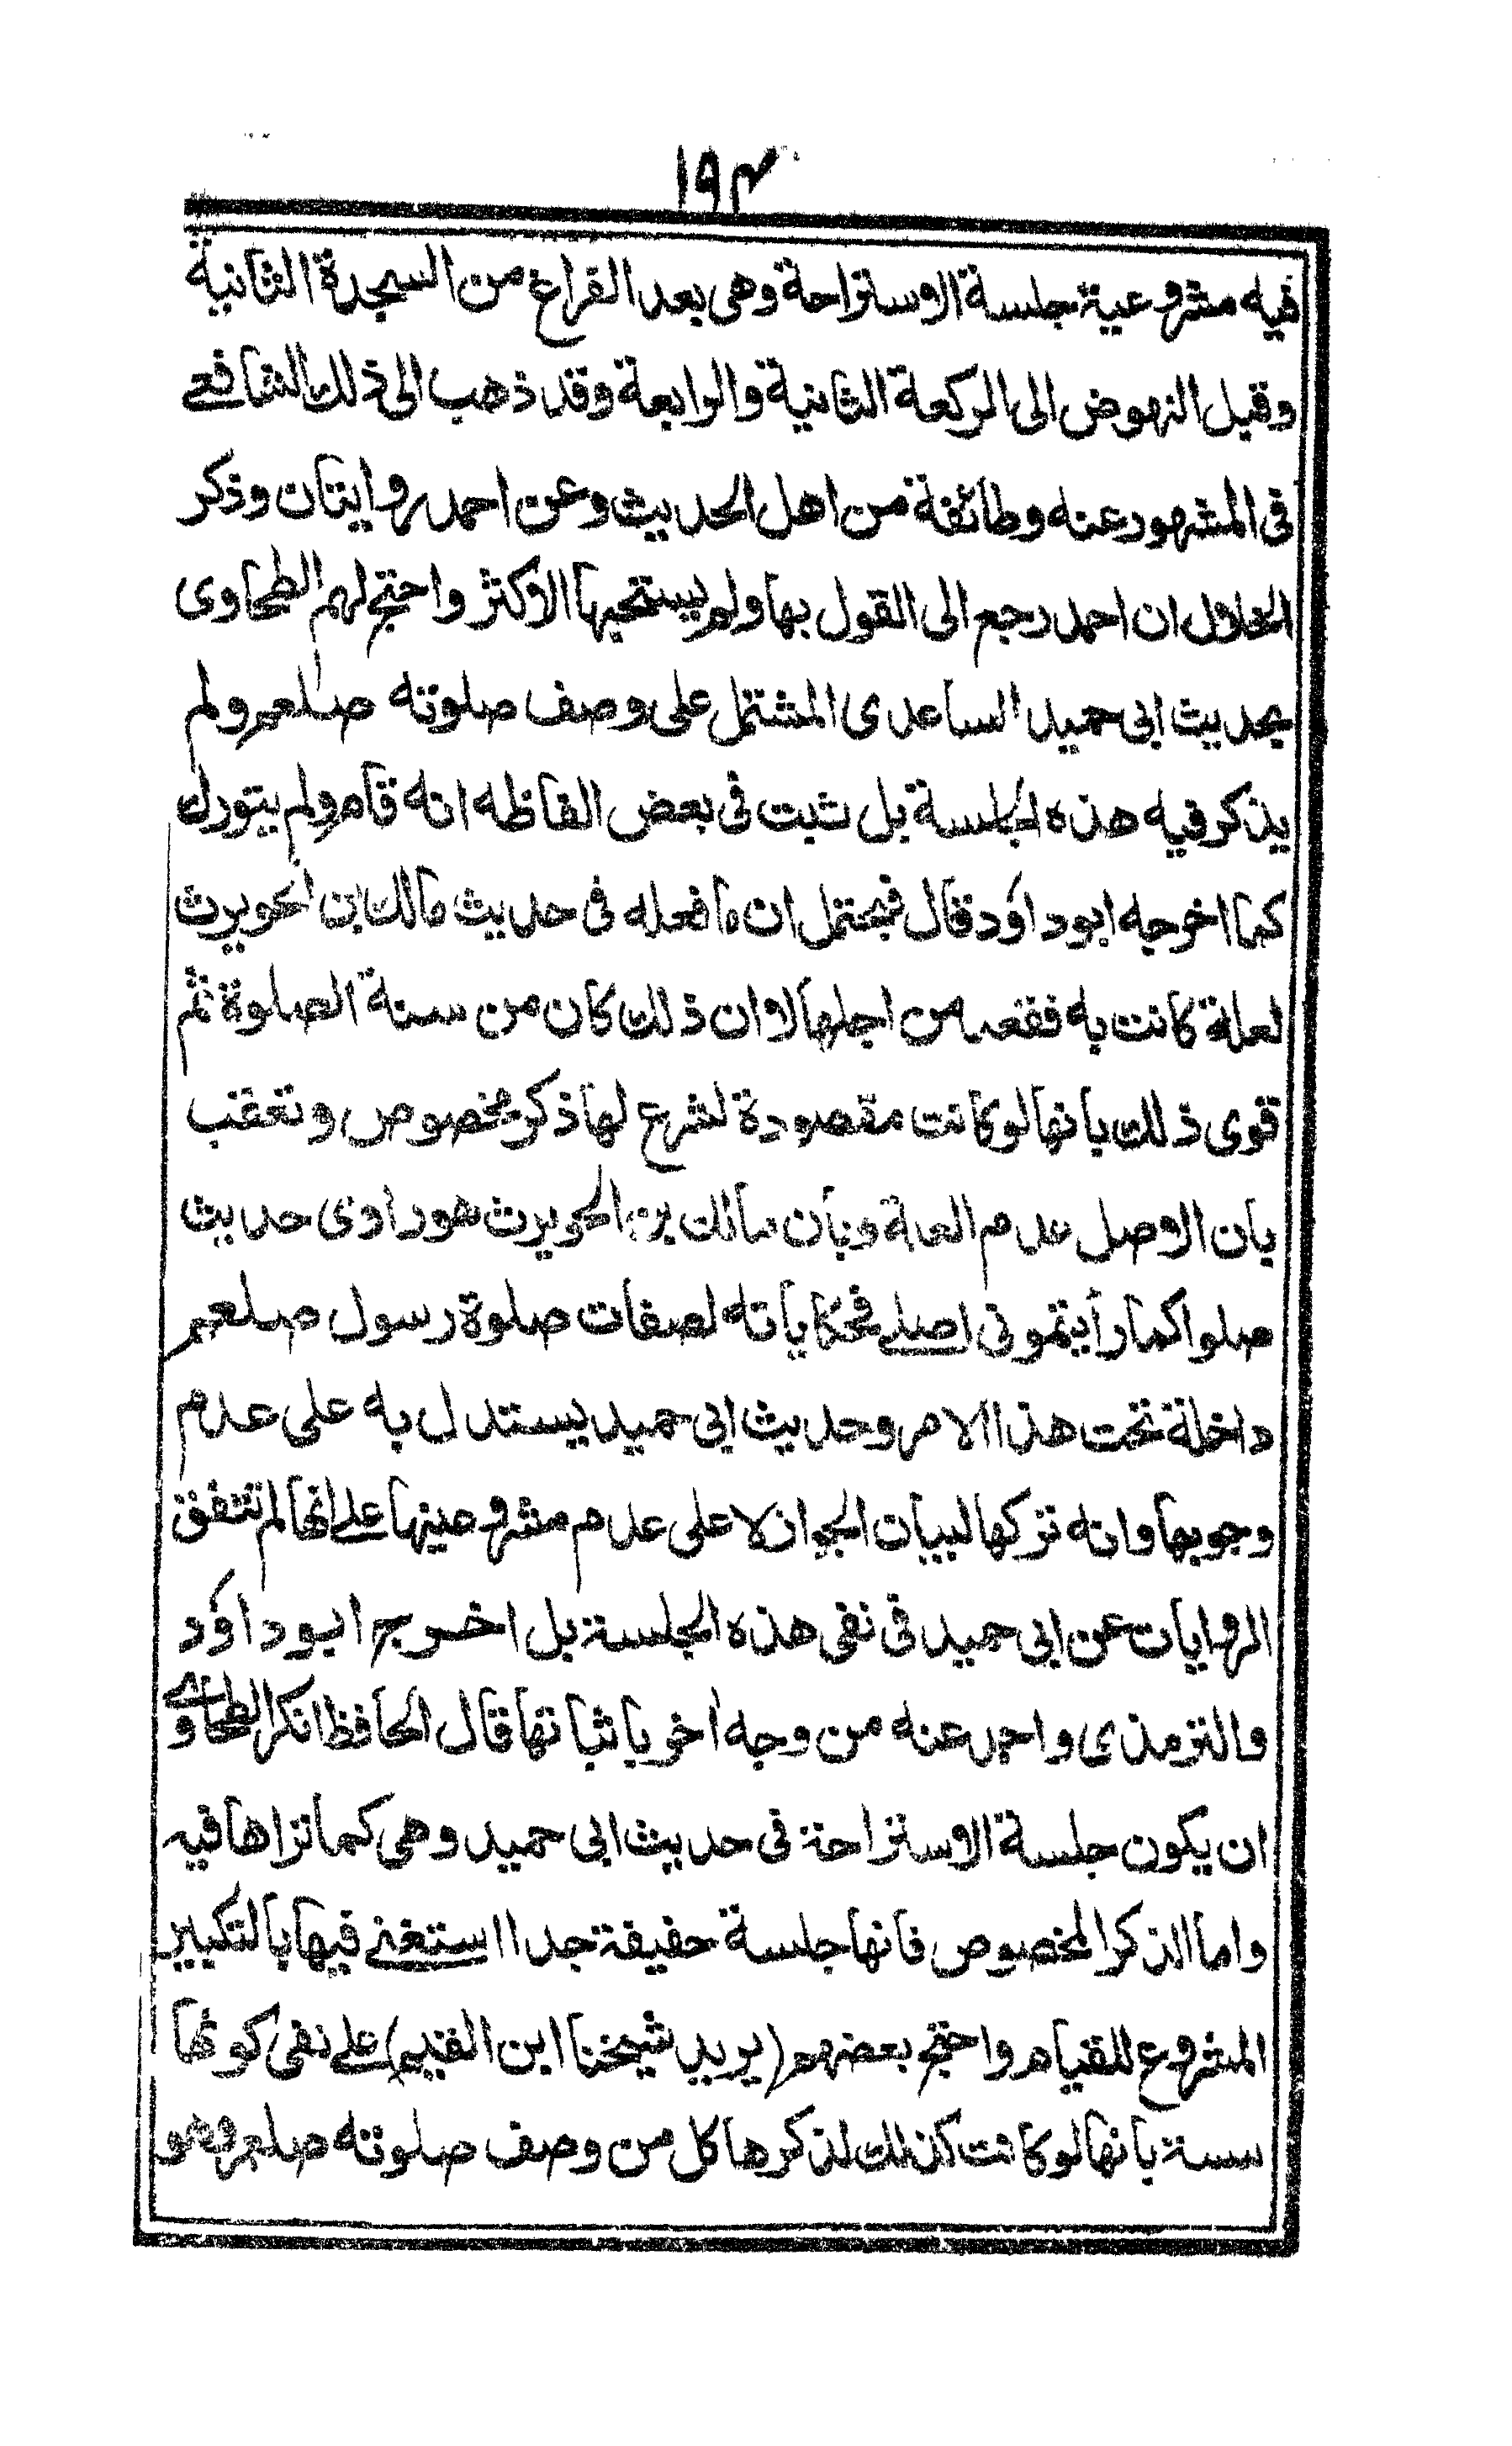 ١٩٣
فيه مشروعية جلسة الاستراحة وهى بعد الفراغ من السجدة الثانية
وقبل النهوض الى الركعة الثانية والرابعة وقد ذهب الى ذلك الشافعے
فى المشهور عنه وطائفة من اهل الحديث وعن احمد روايتان وذكر
الخلال ان احمد رجع الى القول بها ولم يستحبها الاكثر واحتج لهم الطحاوى
بحديث ابى حميد الساعدى المشتمل على وصف صلوته صلعم ولم
يذكر فيه هذه الجلسة بل ثبت فى بعض الفاظه انه قام ولم يتورك
كما اخرجه ابوداؤد قال فيحتمل ان ما فعله فى حديث مالك بن الحويرث
لعلة كانت به فقعد من اجلها لا ان ذلك كان من سنة الصلوة ثم
قوى ذلك بانها لو كانت مقصودة لشرع لها ذكر مخصوص وتعقب
بان الاصل عدم العلة وبان مالك بن الحويرث هو راوى حديث
صلوا كما رأيتمونى اصلے فحكاياته لصفات صلوة رسول صلعم
داخلة تحت هذا الامر وحديث ابى حميد يستدل به على عدم
وجوبها وانه تركها لبيان الجواز لا على عدم مشروعيتها علے انها لم تتفق
الروايات عن ابى حميد فى نفى هذه الجلسة بل اخرج ابوداؤد
والترمذى واحمد عنه من وجه أخر باثباتها قال الحافظ انكر الطحاوے
ان يكون جلسة الاستراحة فى حديث ابى حميد وهى كما تراها فيه
واما الذكر المخصوص فانها جلسة خفيفة جدا استغنے فيها بالتكبير
المشروع للقيام واحتج بعضهم (يريد شيخنا ابن القيم) علے نفى كونها
سنة بانها لو كانت كذلك لذكرها كل من وصف صلوته صلعم وهو